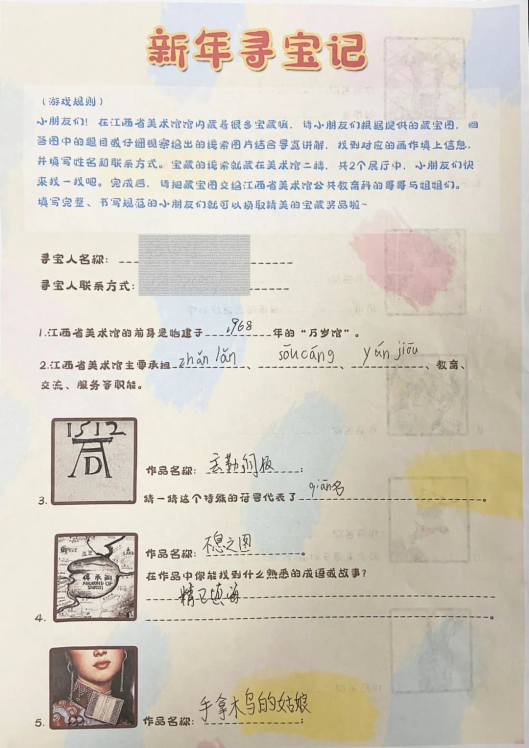 新年寻宝记
（游戏规则）
小朋友们！在江西省美术馆馆内藏着很多宝藏哦，请小朋友们根据提供的藏宝图，回
答图中的题目或仔细观察给出的线索图片结合导览讲解，找到对应的画作填上信息，
并填写姓名和联系方式。宝藏的线索就藏在美术馆二楼，共2个展厅中，小朋友们快
来找一找吧。完成后，请把藏宝图交给江西省美术馆公共教育科的哥哥与姐姐们。
填写完整、书写规范的小朋友们就可以换取精美的宝藏奖品啦~
寻宝人名称：
寻宝人联系方式：
1.江西省美术馆的前身是始建于1968年的“万岁馆”。
2.江西省美术馆主要承担zhǎn lǎn、sōu cáng、yán jiōu、教育、
交流、服务等职能。
1512
AD
作品名称：丢勒铜板；
3.猜一猜这个特殊的符号代表了qiān名。
作品名称：不息之图。
在作品中你能找到什么熟悉的成语或故事？
精卫填海
4.
5.作品名称：手拿木鸟的姑娘